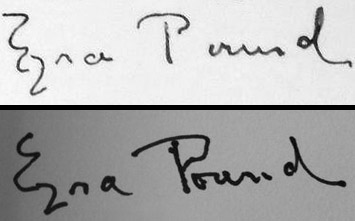 Ezra Pound
Ezra Pound